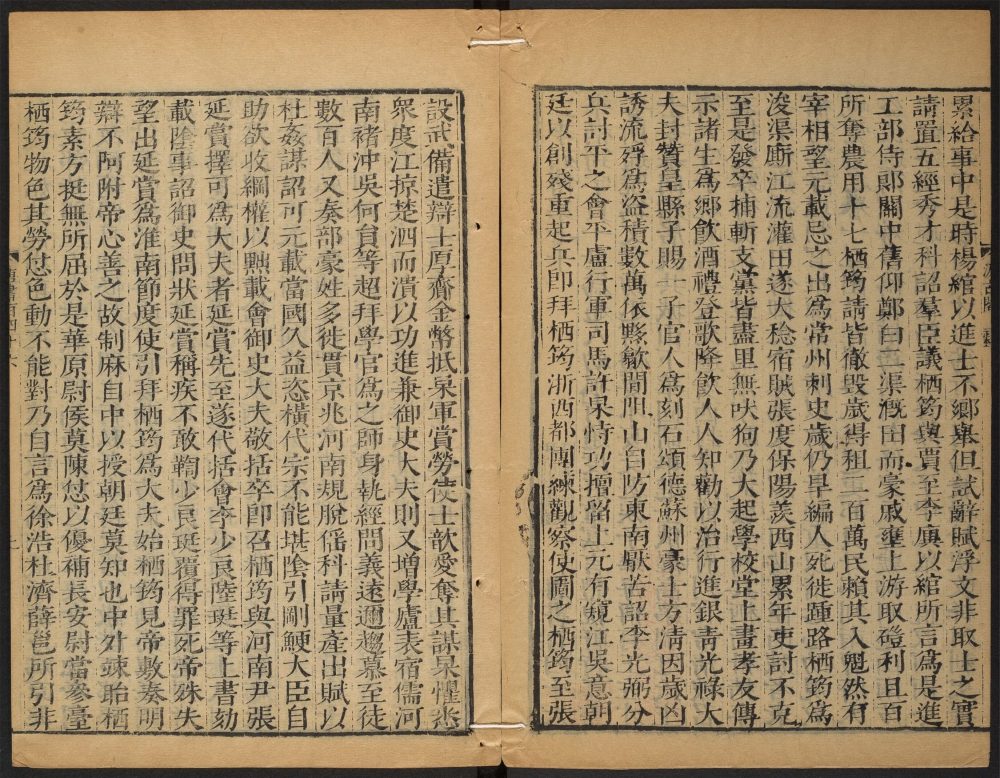 累給事中是時楊綰以進士不鄉舉但試辭賦浮文非取士之實
請置五經秀才科詔羣臣議栖筠與賈至李廙以綰所言爲是進
工部侍郎關中舊仰鄭白二渠漑田而豪戚壅上游取磑利且百
所奪農用十七栖筠請皆徹毀歲得租二百萬民賴其入魁然有
宰相望元載忌之出爲常州刺史歲仍旱編人死徙踵路栖筠爲
浚渠廝江流灌田遂大稔宿賊張度保陽羨西山累年吏討不克
至是發卒捕斬支黨皆盡里無吠狗乃大起學校堂上畫孝友傳
示諸生爲鄉飲酒禮登歌降飲人人知勸以治行進銀靑光祿大
夫封贊皇縣子賜一子官人爲刻石頌德蘇州豪士方淸因歲凶
誘流殍爲盜積數萬依黟歙間阻山自防東南厭苦詔李光弼分
兵討平之會平盧行軍司馬許杲恃功擅留上元有窺江吳意朝
廷以創殘重起兵卽拜栖筠浙西都團練觀察使圖之栖筠至張
設武備遣辯士厚齎金幣抵杲軍賞勞使士歆愛奪其謀杲懼悉
衆度江掠楚泗而潰以功進兼御史大夫則又增學廬表宿儒河
南褚沖吳何員等超拜學官爲之師身執經問義遠邇趨慕至徒
數百人又奏部豪姓多徙貫京兆河南規脫傜科請量產出賦以
杜姦謀詔可元載當國久益恣橫代宗不能堪陰引剛鯁大臣自
助欲收綱權以黜載會御史大夫敬括卒卽召栖筠與河南尹張
延賞擇可爲大夫者延賞先至遂代括會李少良陸珽等上書劾
載陰事詔御史問狀延賞稱疾不敢鞫少良珽覆得罪死帝殊失
望出延賞爲淮南節度使引拜栖筠爲大夫始栖筠見帝敷奏明
辯不阿附帝心善之故制麻自中以授朝廷莫知也中外竦眙栖
筠素方挺無所屈於是華原尉侯莫陳怤以優補長安尉當參臺
栖筠物色其勞怤色動不能對乃自言爲徐浩杜濟薛邕所引非